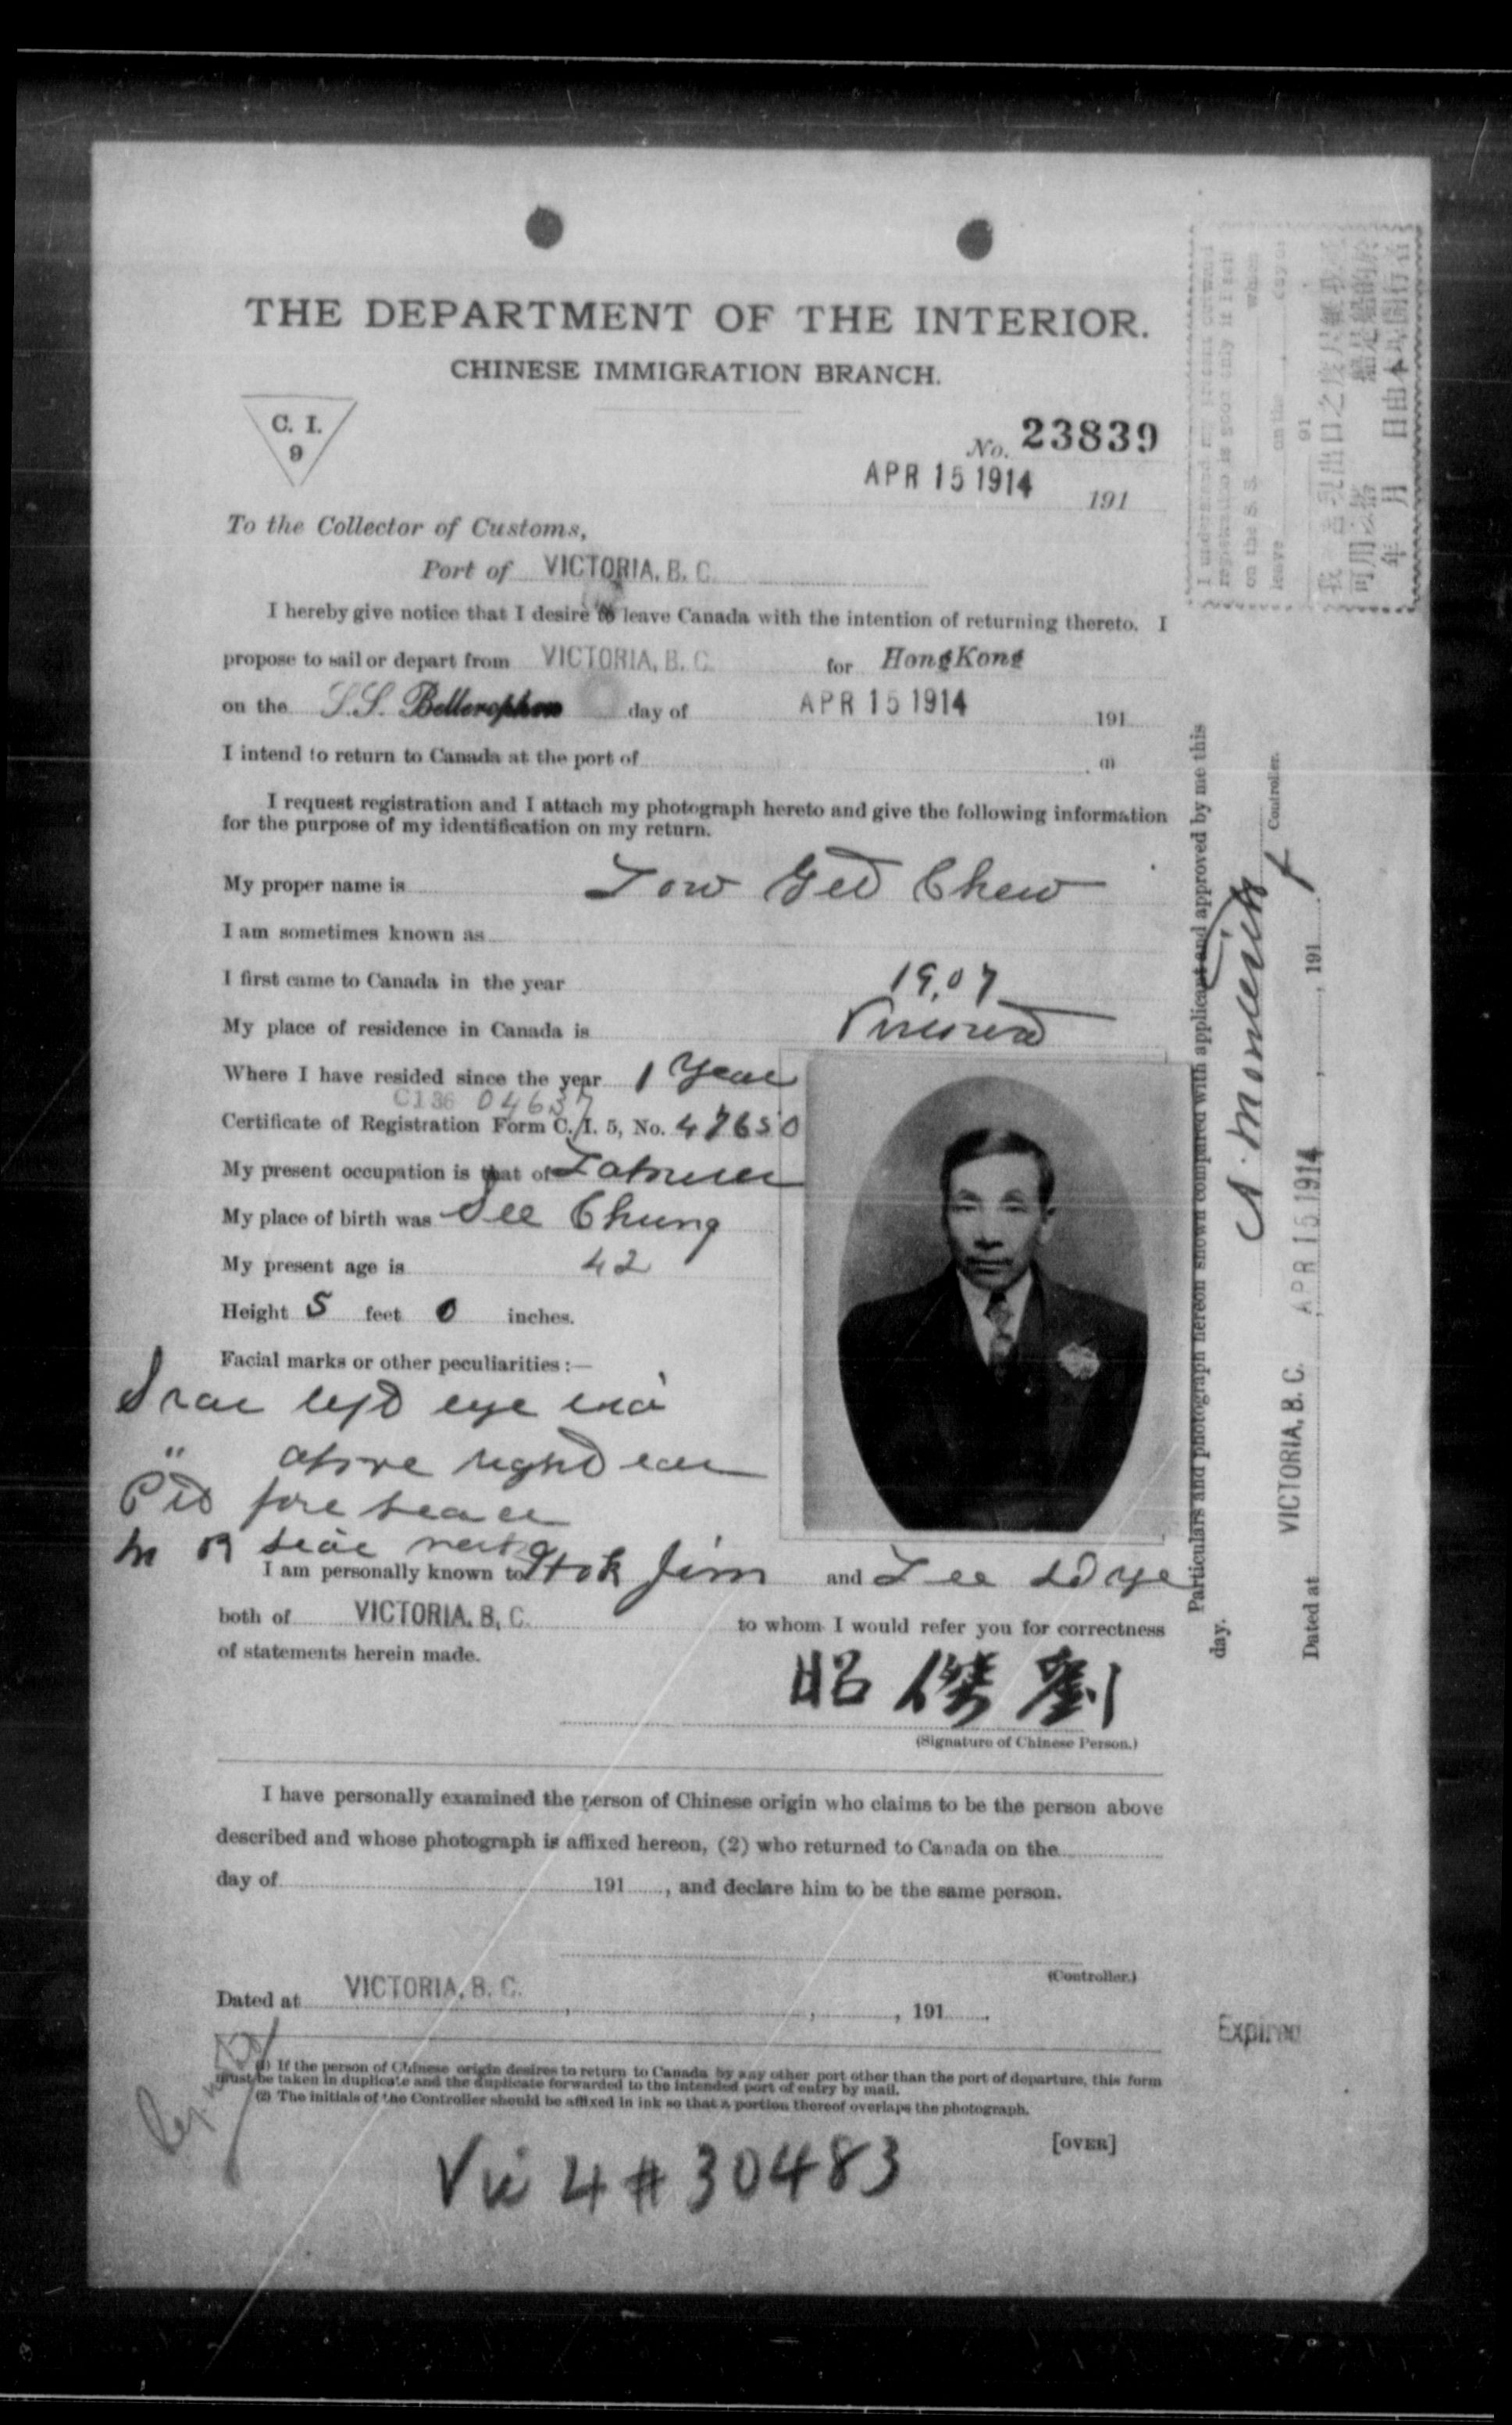 THE DEPARTMENT OF THE INTERIOR.
CHINESE IMMIGRATION BRANCH.
C. I.
9
No. 23839
APR 15 1914 191
To the Collector of Customs,
Port of VICTORIA, B. C.
I hereby give notice that I desire to leave Canada with the intention of returning thereto. I
propose to sail or depart from VICTORIA, B. C. for HongKong
on the S.S. Bellerophon day of APR 15 1914 191
I intend to return to Canada at the port of (1)
I request registration and I attach my photograph hereto and give the following information
for the purpose of my identification on my return.
My proper name is Low Ged Chew
I am sometimes known as
I first came to Canada in the year 1907
My place of residence in Canada is
Where I have resided since the year 1 Year
C.I.36 04637
Certificate of Registration Form C. I. 5, No. 47650
My present occupation is that of
My place of birth was See Chung
My present age is 42
Height 5 feet 0 inches.
Facial marks or other peculiarities :—
Scar left eye end
" above right ear
Pit forehead
R side neck
I am personally known to Hok Jim and Lee Dye
both of VICTORIA, B. C. to whom I would refer you for correctness
of statements herein made.
昭傑劉
(Signature of Chinese Person.)
I have personally examined the person of Chinese origin who claims to be the person above
described and whose photograph is affixed hereon, (2) who returned to Canada on the
day of 191 , and declare him to be the same person.
(Controller.)
Dated at VICTORIA, B. C. , , , 191 .
(1) If the person of Chinese origin desires to return to Canada by any other port other than the port of departure, this form
must be taken in duplicate and the duplicate forwarded to the intended port of entry by mail.
(2) The initials of the Controller should be affixed in ink so that a portion thereof overlaps the photograph.
[OVER]
Vic 4 # 30483
Expired
Particulars and photograph hereon shown compared with applicant and approved by me this
day.
Controller.
Dated at VICTORIA, B. C. , APR 15 1914 , 191